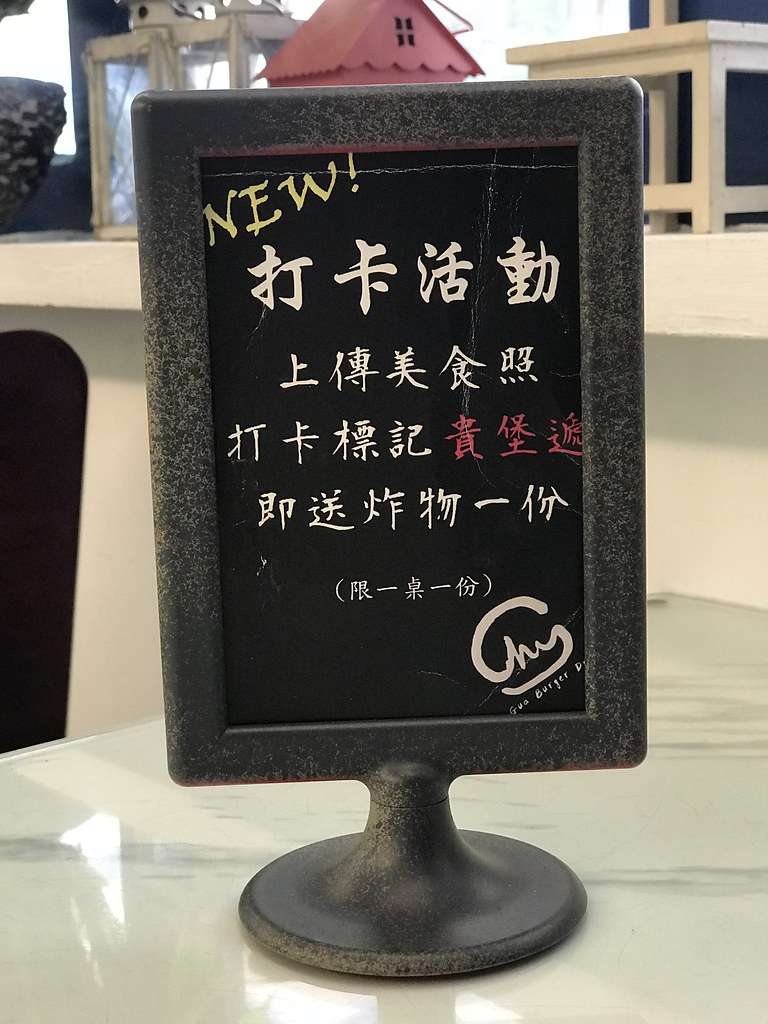 NEW!
打卡活動
上傳美食照
打卡標記 貴堡遞
即送炸物一份
（限一桌一份）
Gua Burger D